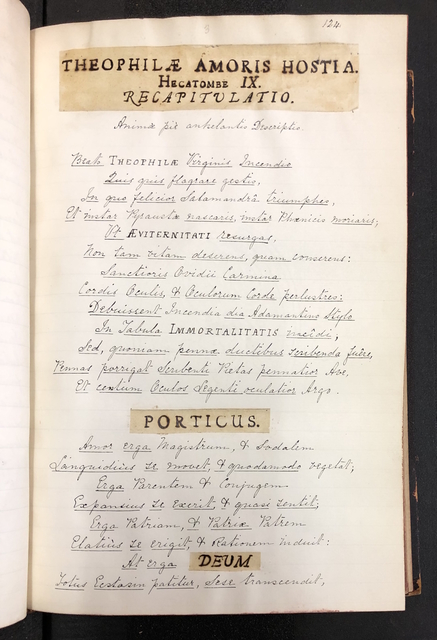 124
THEOPHILÆ AMORIS HOSTIA.
HECATOMBE IX.
RECAPITULATIO.
Animæ piè anhelantis Descriptio.
Beato THEOPHILÆ Virginis Incendio
Quis quis flagrare gestis,
In quo felicior Salamandrâ triumphes,
Et instar Pyraustæ nascaris, instar Phœnicis moriaris;
Ut ÆVITERNITATI resurgas.
Non tam vitam deserens, quam conserens:
Sanctioris Ovidii Carmina
Cordis Oculis, & Oculorum Corde perlustres:
Debuissent Incendia dia Adamantino Stylo
In Tabulâ IMMORTALITATIS incîdi;
Sed, quoniam pennæ ductibus scribenda fuêre,
Pennas porrigat Scribenti Pietas pennatior Ave,
Et centum Oculos Legenti oculatior Argo.
PORTICUS.
Amor erga Magistrum, & Sodalem
Languidiùs se movet, & quodamodo vegetat;
Erga Parentem & Conjugem
Expansius se exerit, & quasi sentit;
Erga Patriam, & Patriæ Patrem
Elatiùs se erigit, & Rationem induit:
At erga DEUM
Totus Ecstasin patitur, Sese transcendit,